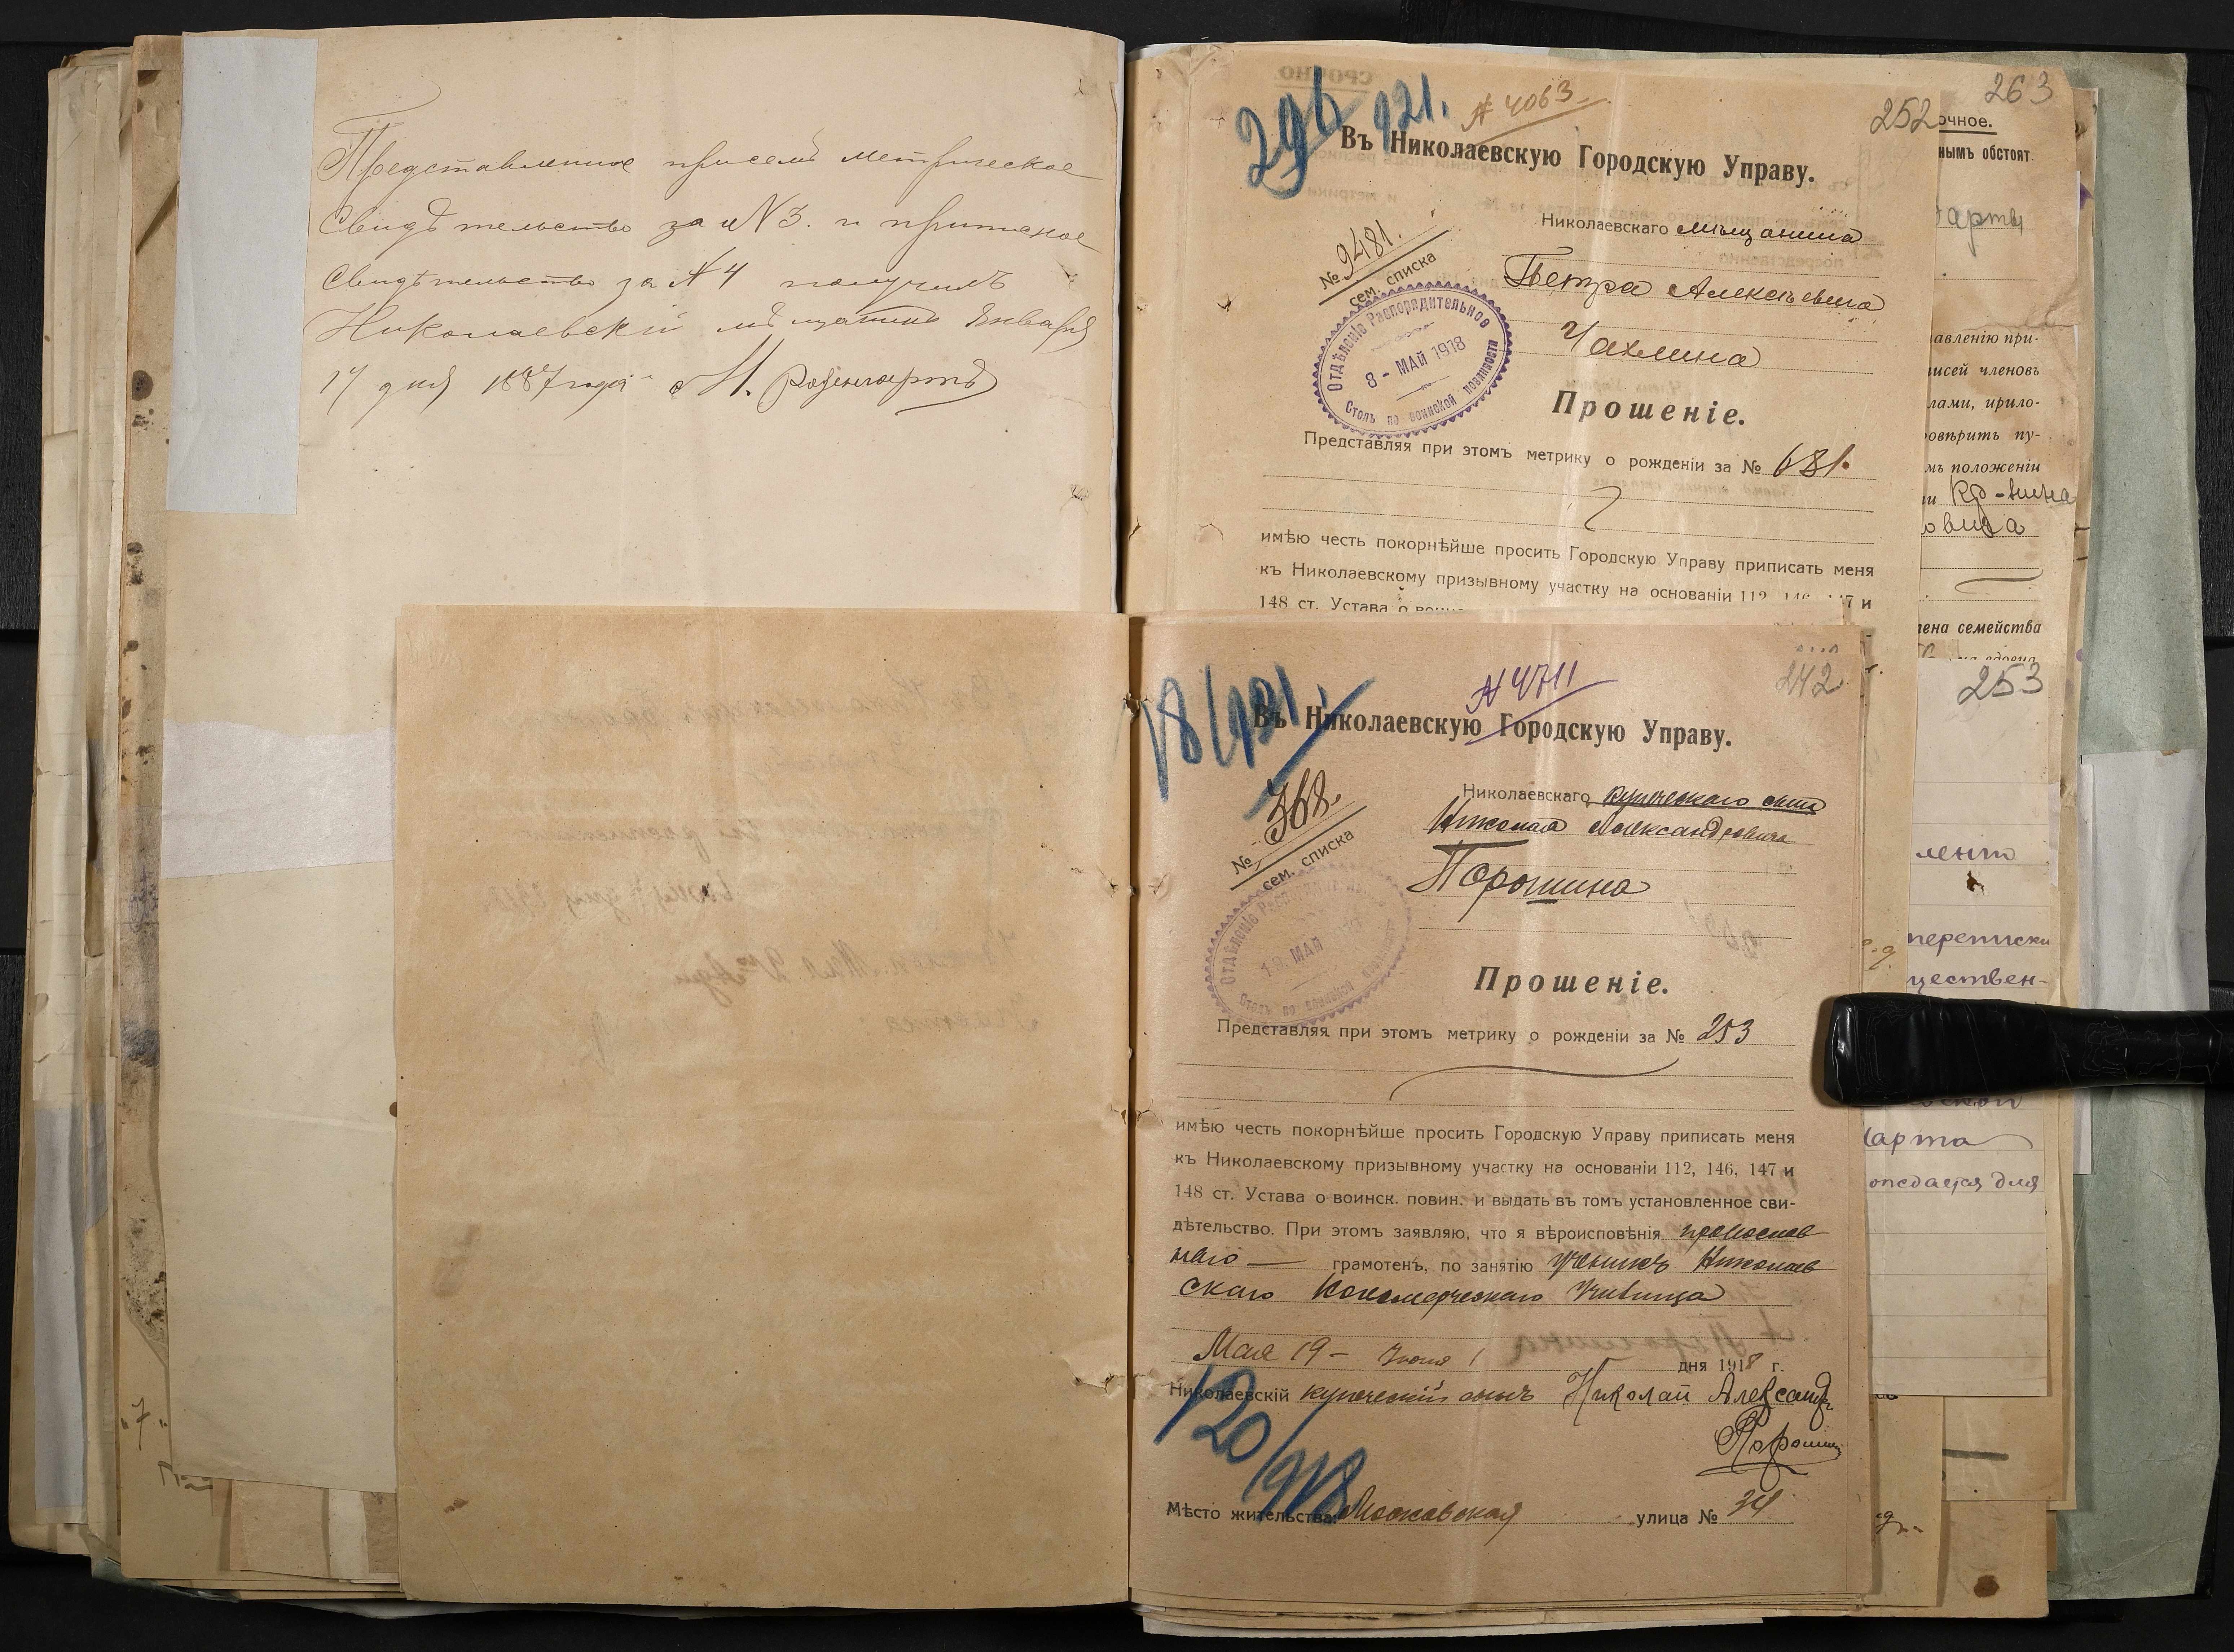 Представленное при семъ метрическое
Свидѣтельство за № 3. и приписное
Свидѣтельство за № 4 получилъ
Николаевскій мѣщанинъ Января
17 дня 1887 года М. Розенгартъ
921. № 4063
252
263
Въ Николаевскую Городскую Управу.
Николаевскаго мѣщанина
№ 9481.
сем. списка
Петра Алексѣевича
Чахлина
Отдѣленіе Распорядительное
8 - МАЙ 1918
Столъ по воинской повинности
Прошеніе.
Представляя при этомъ метрику о рожденіи за № 681.
имѣю честь покорнѣйше просить Городскую Управу приписать меня
къ Николаевскому призывному участку на основаніи 112
148 ст. Устава о
очное.
нымъ обстоят.
арта
авленію при-
исей членовъ
лами, прило-
овѣрить пу-
мъ положеніи
овича
лена семейства
253
переписки
ществен-
арта
дается для
№ 4711
242
Въ Николаевскую Городскую Управу.
Николаевскаго купеческаго сына
№ 368.
сем. списка
Николая Александровича
Порошина
Отдѣленіе
МАЙ
Столъ по воинской
Прошеніе.
Представляя при этомъ метрику о рожденіи за № 253
имѣю честь покорнѣйше просить Городскую Управу приписать меня
къ Николаевскому призывному участку на основаніи 112, 146, 147 и
148 ст. Устава о воинск. повин. и выдать въ томъ установленное сви-
дѣтельство. При этомъ заявляю, что я вѣроисповѣнія православ
наго грамотенъ, по занятію ученикъ Николаев
скаго Коммерческаго Училища
Мая 19 - Іюня 1 дня 1918 г.
Николаевскій купеческій сынъ Николай Александр.
Порошин
120/918
Мѣсто жительства: Московская улица № 34